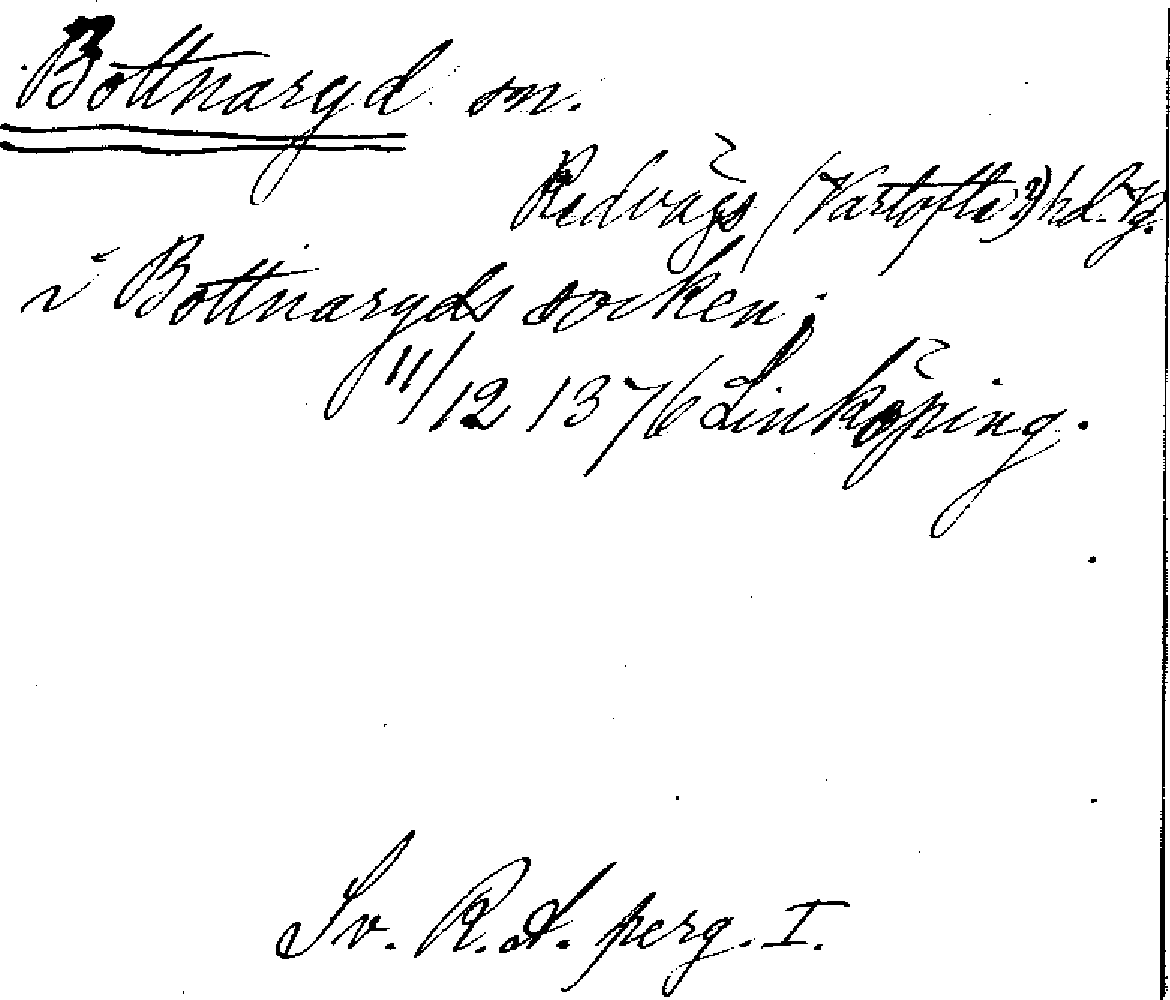 Bottnaryd sn.
Redvägs (Vartofta?) hd. Vg.
i Bottnaryds socken;
11/12 1376 Linköping.
Sv. R. A. perg. I.